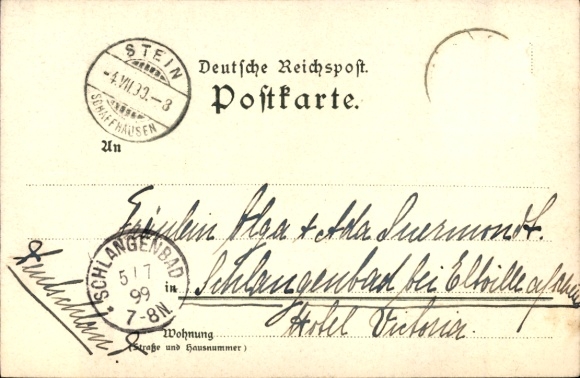 STEIN
-4.VII.99.-8
SCHAFFHAUSEN
Deutsche Reichspost.
Postkarte.
An
Fräulein Olga + Ada Suermondt.
SCHLANGENBAD
5 7
99
7-8N.
in Schlangenbad bei Eltville a/Rhein
Hotel Victoria.
Deutschland
Wohnung
(Straße und Hausnummer)